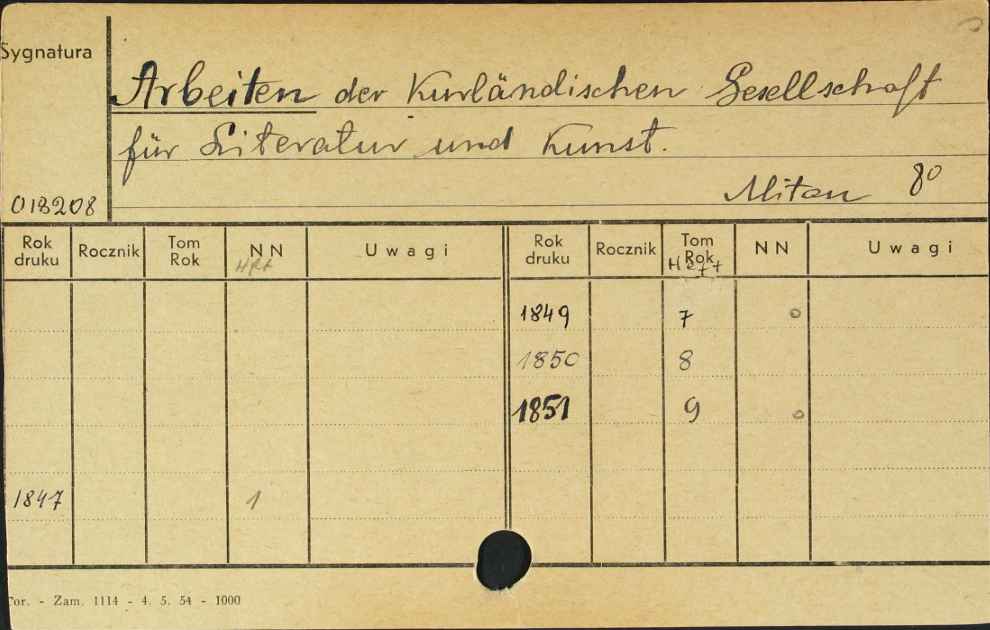 Sygnatura
Arbeiten der Kurländischen Gesellschaft
für Literatur und Kunst.
Mitau 8o
018208
Rok druku Rocznik Tom Rok NN Uwagi Rok druku Rocznik Tom Rok NN Uwagi
Hft Heft
1849 7 o
1850 8
1851 9 o
1847 1
Tor. - Zam. 1114 - 4. 5. 54 - 1000